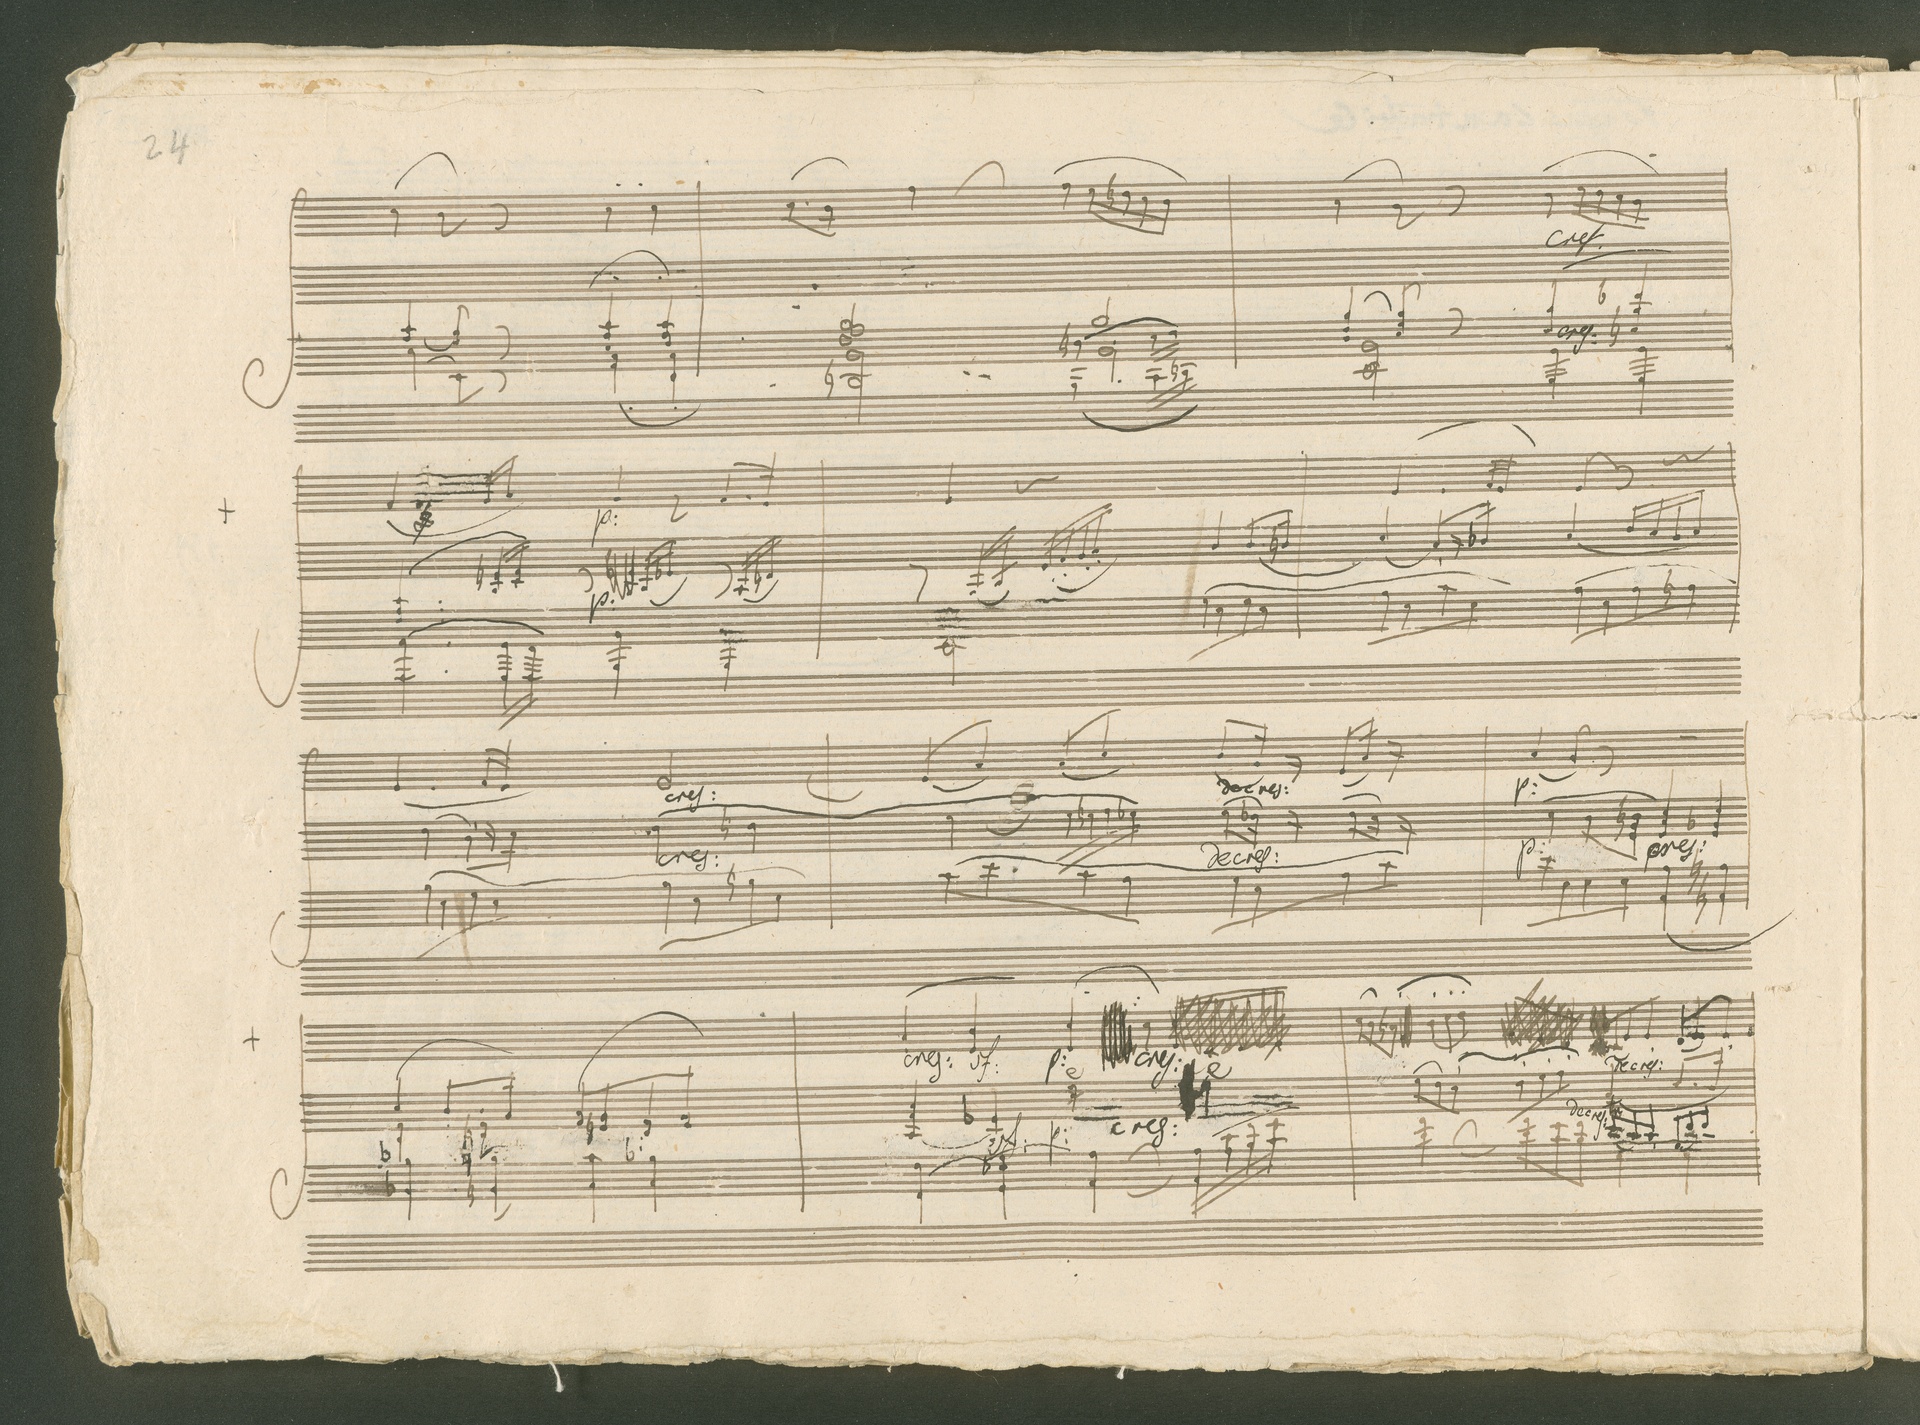 24
cres.
cres:
p:
p:
cres: decres: p:
cres: decres: p: cres:
cres: sf: p: cres: decres:
sf: p: cres: decres: